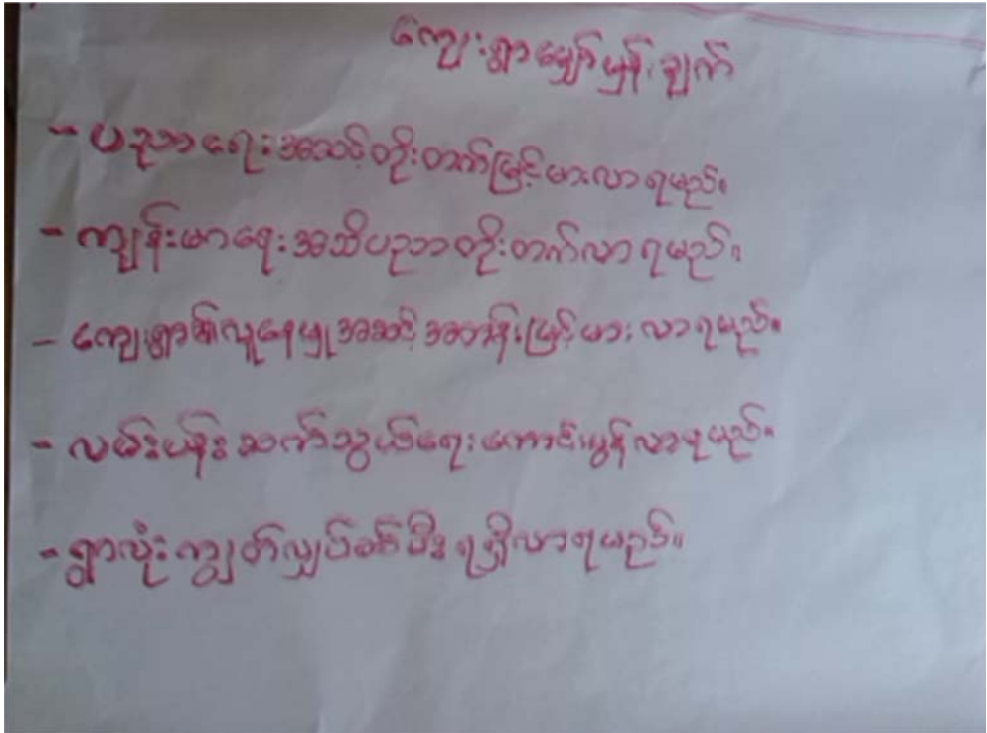 ကျေးရွာမျှော်မှန်းချက်
- ပညာရေးအဆင့်တိုးတက်မြင့်မားလာရမည်။
- ကျန်းမာရေးအသိပညာတိုးတက်လာရမည်။
- ကျေးရွာ၏လူနေမှုအဆင့်အတန်းမြင့်မားလာရမည်။
- လမ်းပန်းဆက်သွယ်ရေးကောင်းမွန်လာရမည်။
- ရွာလုံးကျွတ်လျှပ်စစ်မီးရရှိလာရမည်။